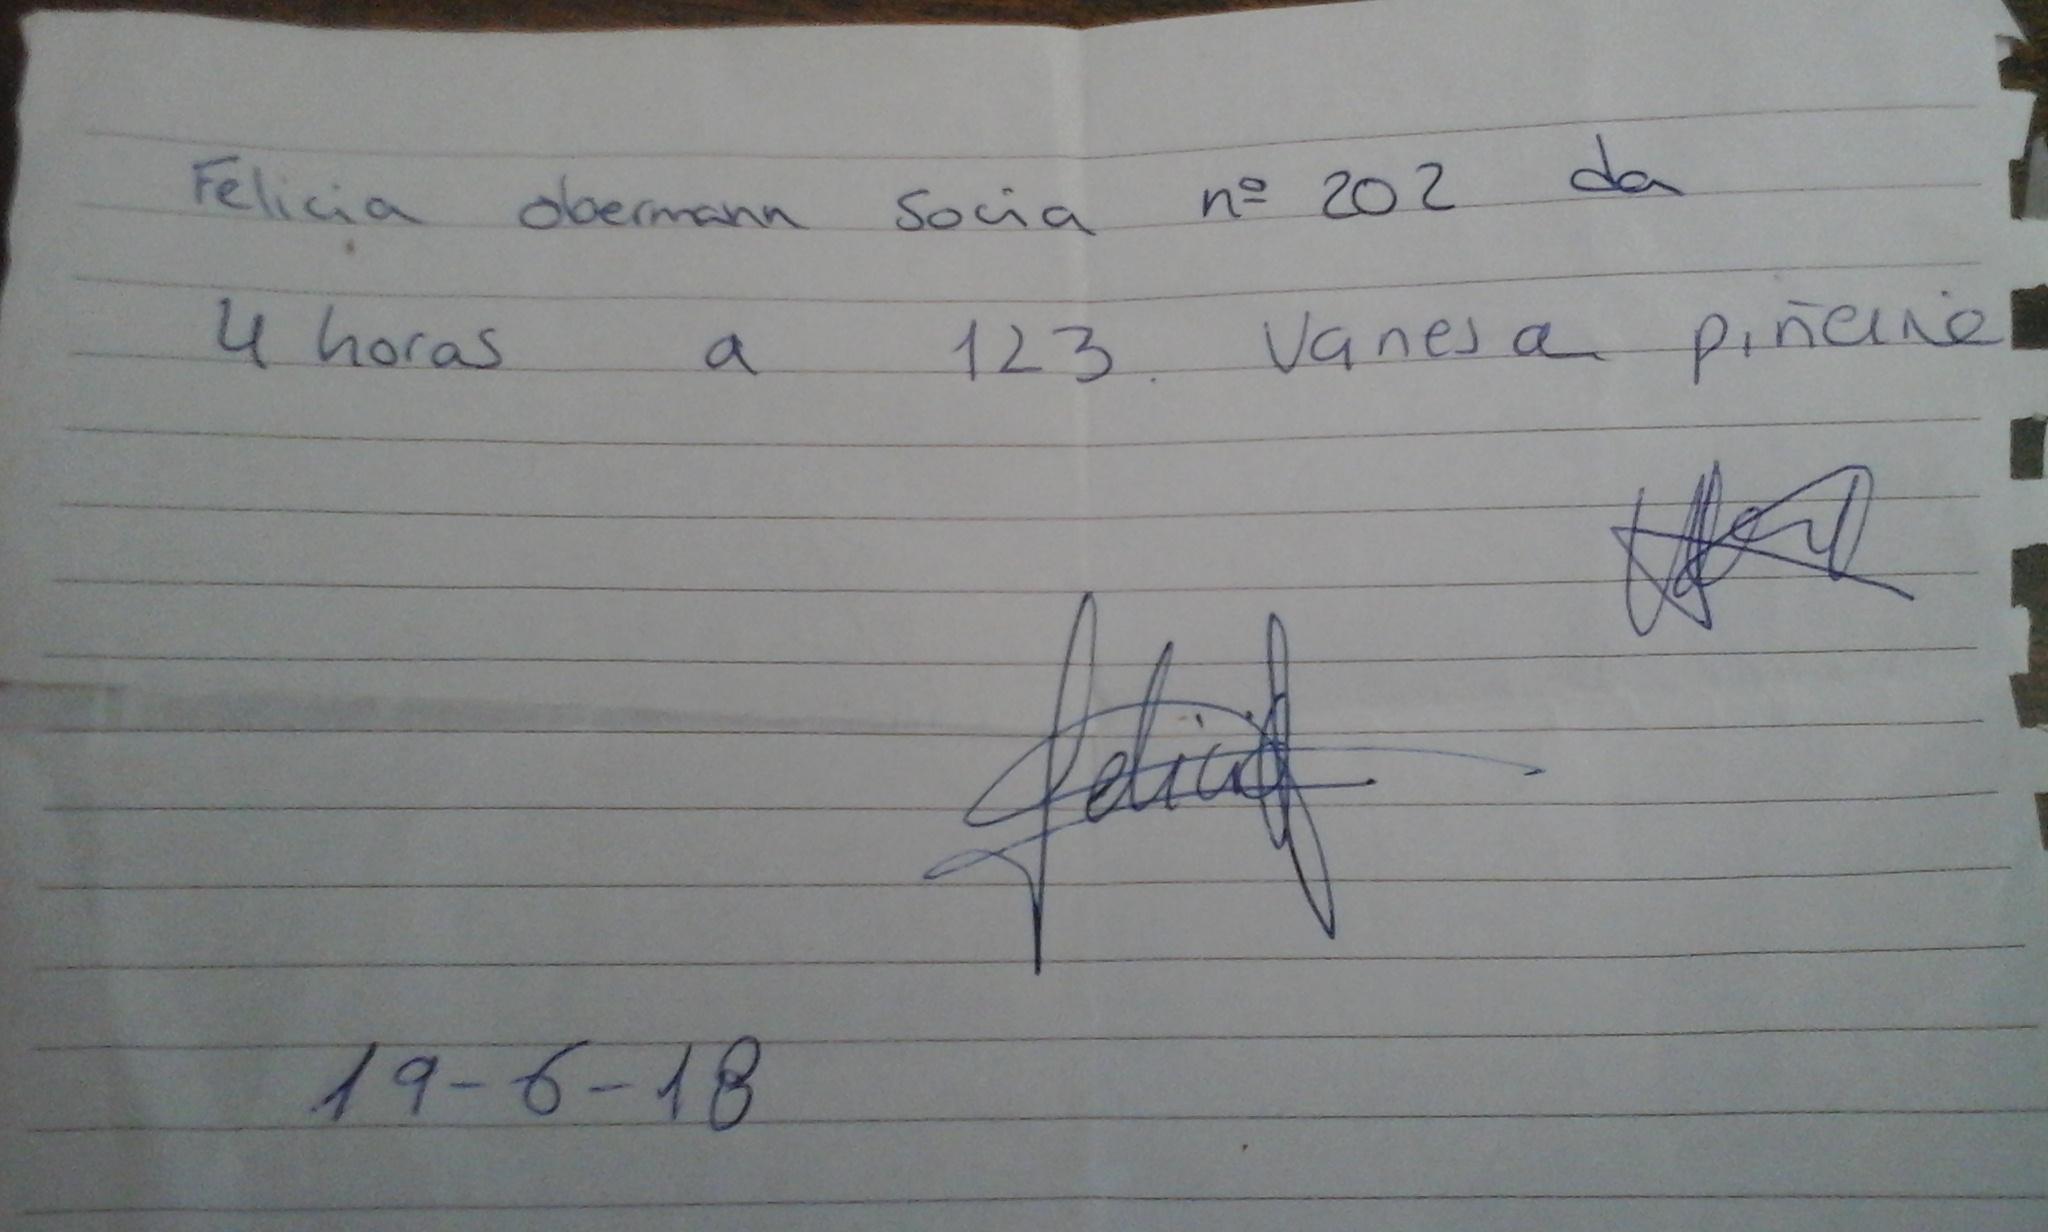 Felicia obermann Socia nº 202 da
4 horas a 123. Vanesa
Felicia
19-6-18